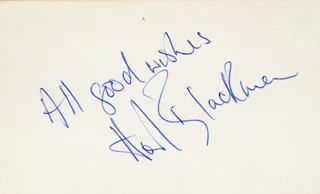 All good wishes
Honor Blackman